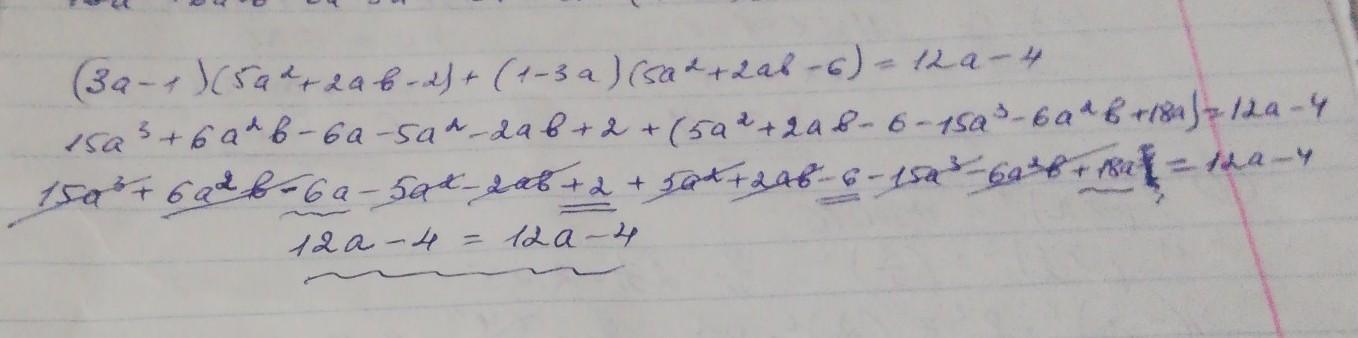 (3a-1)(5a²+2ab-2)+(1-3a)(5a²+2ab-6)=12a-4
15a³+6a²b-6a-5a²-2ab+2+(5a²+2ab-6-15a³-6a²b+18a)=12a-4
15a³+6a²b-6a-5a²-2ab+2+5a²+2ab-6-15a³-6a²b+18a=12a-4
12a-4=12a-4